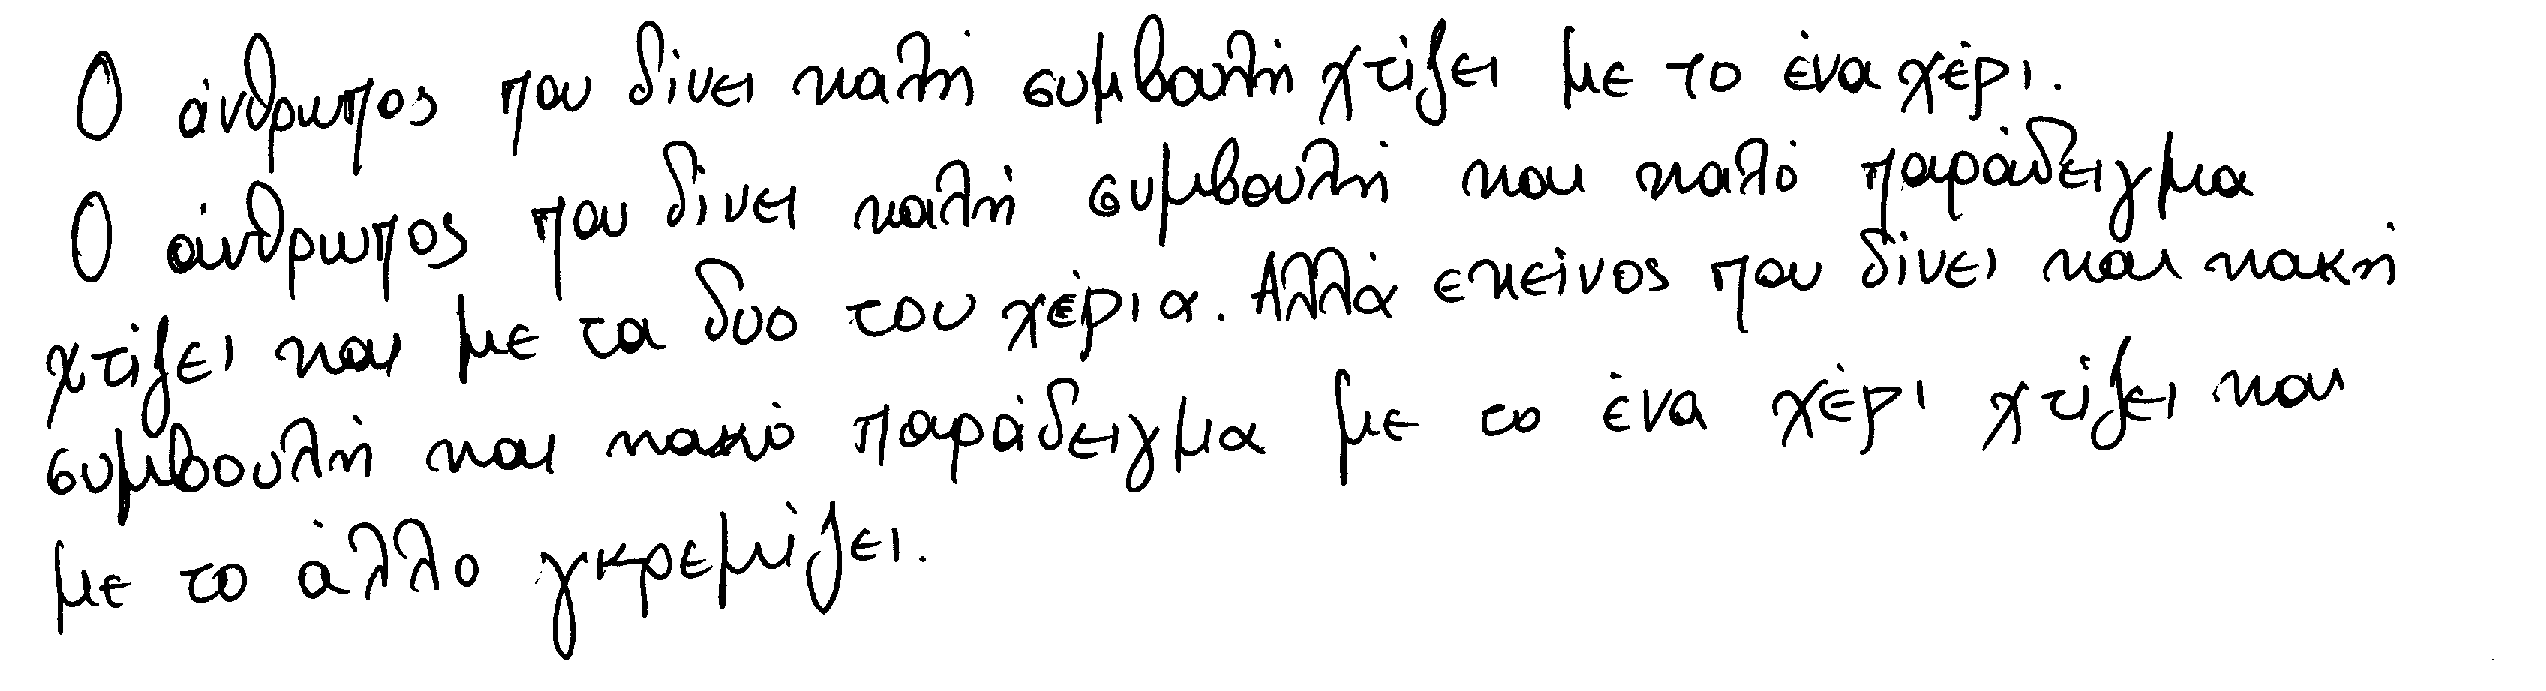 Ο άνθρωπος που δίνει καλή συμβουλή χτίζει με το ένα χέρι.
Ο άνθρωπος που δίνει καλή συμβουλή και καλό παράδειγμα
χτίζει και με τα δυο του χέρια. Αλλά εκείνος που δίνει και κακή
συμβουλή και κακό παράδειγμα με το ένα χέρι χτίζει και
με το άλλο γκρεμίζει.